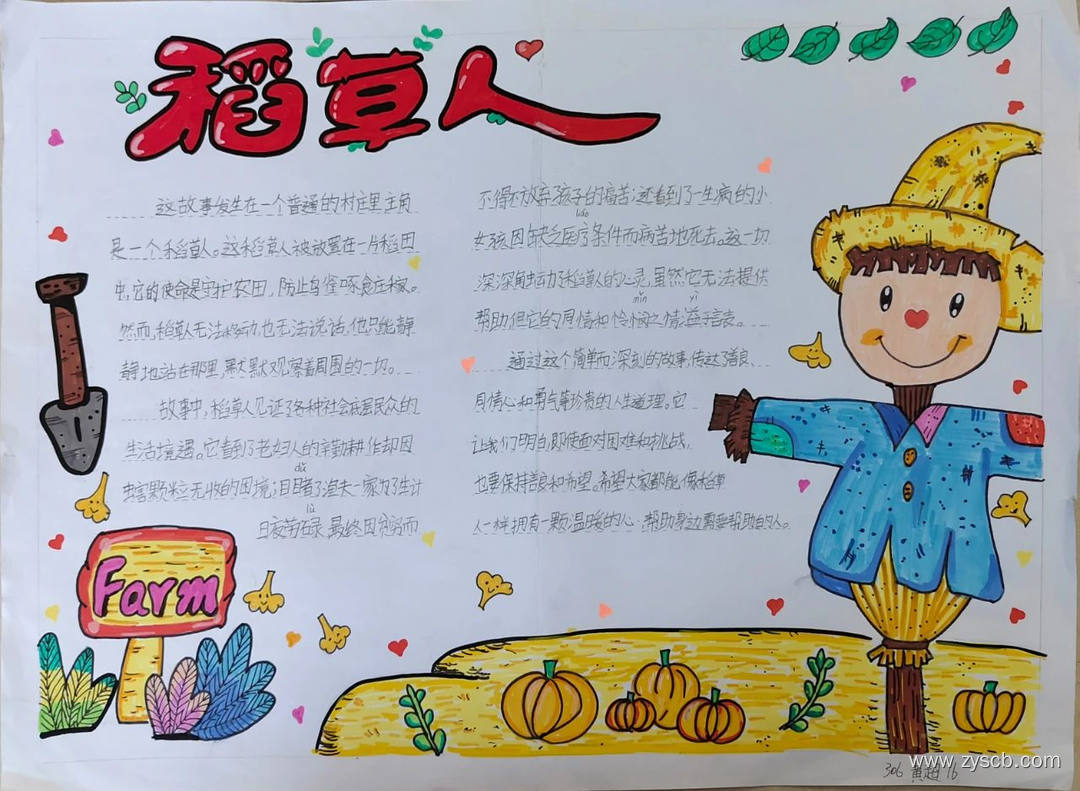 稻草人
这故事发生在一个普通的村庄里主角
是一个稻草人。这稻草人被放置在一片稻田
中,它的使命是守护农田,防止鸟雀啄食庄稼。
然而,稻草人无法移动也无法说话,他只能静
静地站在那里,默默观察着周围的一切。
故事中,稻草人见证了各种社会底层民众的
生活境遇。它看到了老妇人的辛勤耕作却因
虫害颗粒无收的困境;目睹了渔夫一家为了生计
dǔ
日夜劳碌,最终因穷而
lù
不得不放弃孩子的痛苦;还看到了一生病的小
女孩因缺乏医疗条件而病苦地死去。这一切
liáo
深深触动了稻草人的心灵,虽然它无法提供
帮助,但它的同情和怜悯之情溢于言表。
mǐn yì
通过这个简单而深刻的故事,传达了善良
同情心和勇气等珍贵的人生道理。它
让我们明白,即使面对困难和挑战,
也要保持善良和希望。希望大家都能像稻草
人一样拥有一颗温暖的心,帮助身边需要帮助的人。
Farm
306 黄超 16
www.zyscb.com